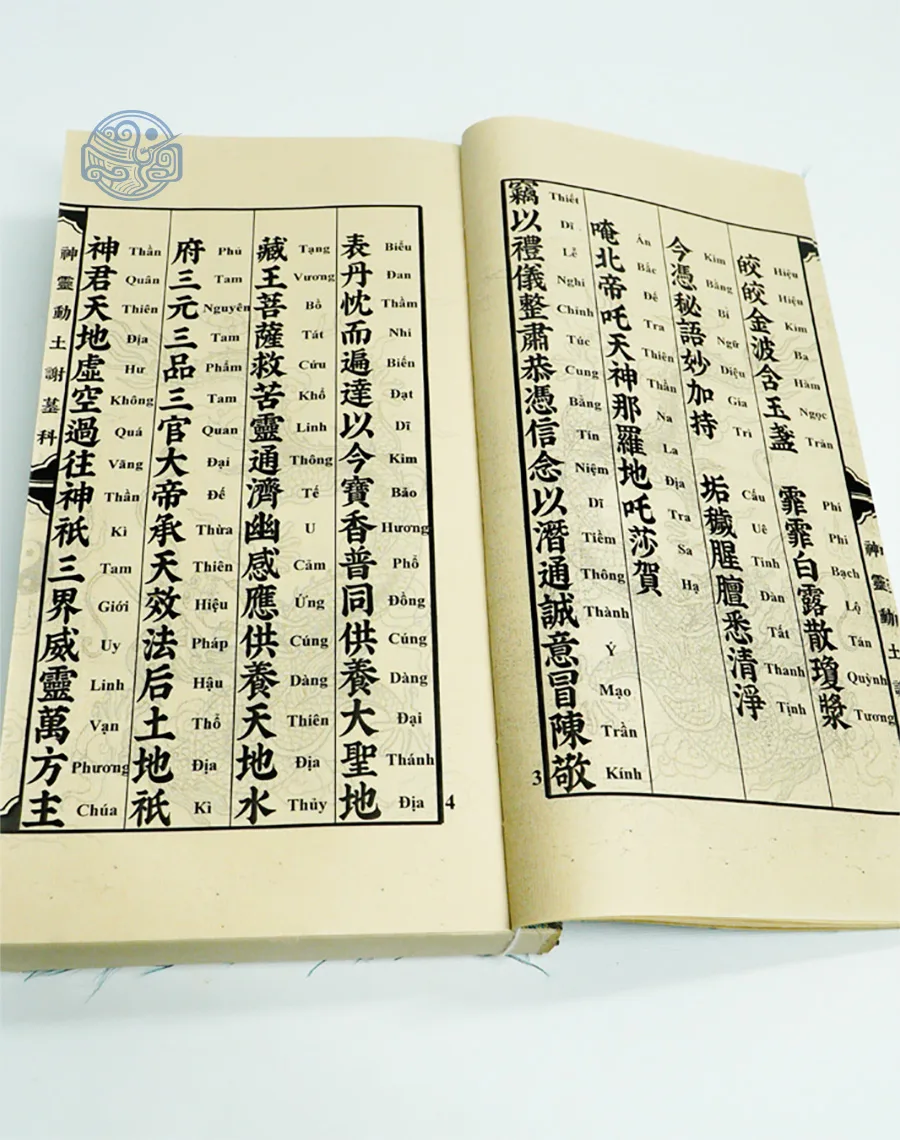 神靈動土
皎皎金波含玉盞 霏霏白露散瓊漿
Hiệu Hiệu Kim Ba Hàm Ngọc Trản Phi Phi Bạch Lộ Tán Quỳnh Tương
今憑秘語妙加持 垢穢腥膻悉清淨
Kim Bằng Bí Ngữ Diệu Gia Trì Cấu Uê Tinh Đàn Tất Thanh Tịnh
唵北帝吒天神那羅地吒莎賀
Án Bắc Đế Tra Thiên Thần Na La Địa Tra Sa Hạ
竊以禮儀整肅恭憑信念以潛通誠意冒陳敬
Thiết Dĩ Lễ Nghi Chỉnh Túc Cung Bằng Tín Niệm Dĩ Tiềm Thông Thành Ý Mạo Trần Kính
3
表丹忱而遍達以今寶香普同供養大聖地
Biểu Đan Thầm Nhi Biến Đạt Dĩ Kim Bảo Hương Phổ Đồng Cúng Dàng Đại Thánh Địa
藏王菩薩救苦靈通濟幽感應供養天地水
Tạng Vương Bồ Tát Cứu Khổ Linh Thông Tế U Cảm Ứng Cúng Dàng Thiên Địa Thủy
府三元三品三官大帝承天效法后土地祇
Phủ Tam Nguyên Tam Phẩm Tam Quan Đại Đế Thừa Thiên Hiệu Pháp Hậu Thổ Địa Kì
神君天地虛空過往神祇三界威靈萬方主
Thần Quân Thiên Địa Hư Không Quá Vãng Thần Kì Tam Giới Uy Linh Vạn Phương Chúa
神靈動土謝墓科
4